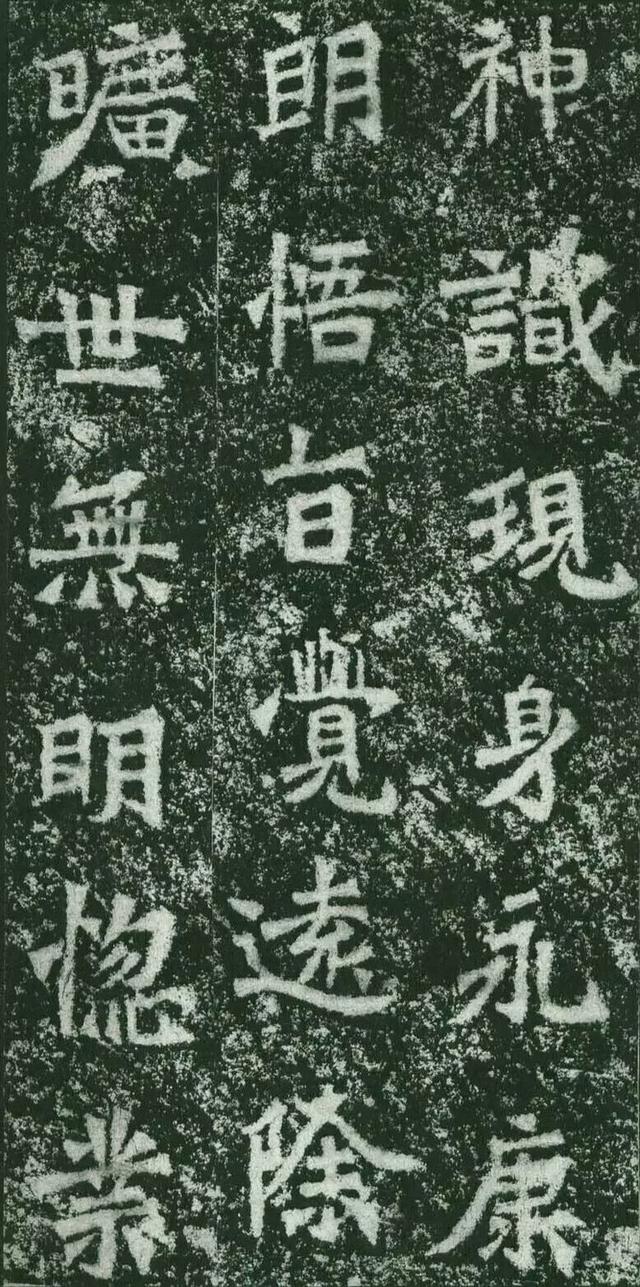 神識現身永康
朗悟旨覺遠除
曠世無明惚業